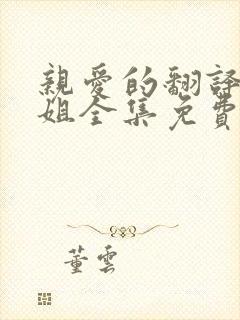 親愛的翻譯
姐全集免費
董雲